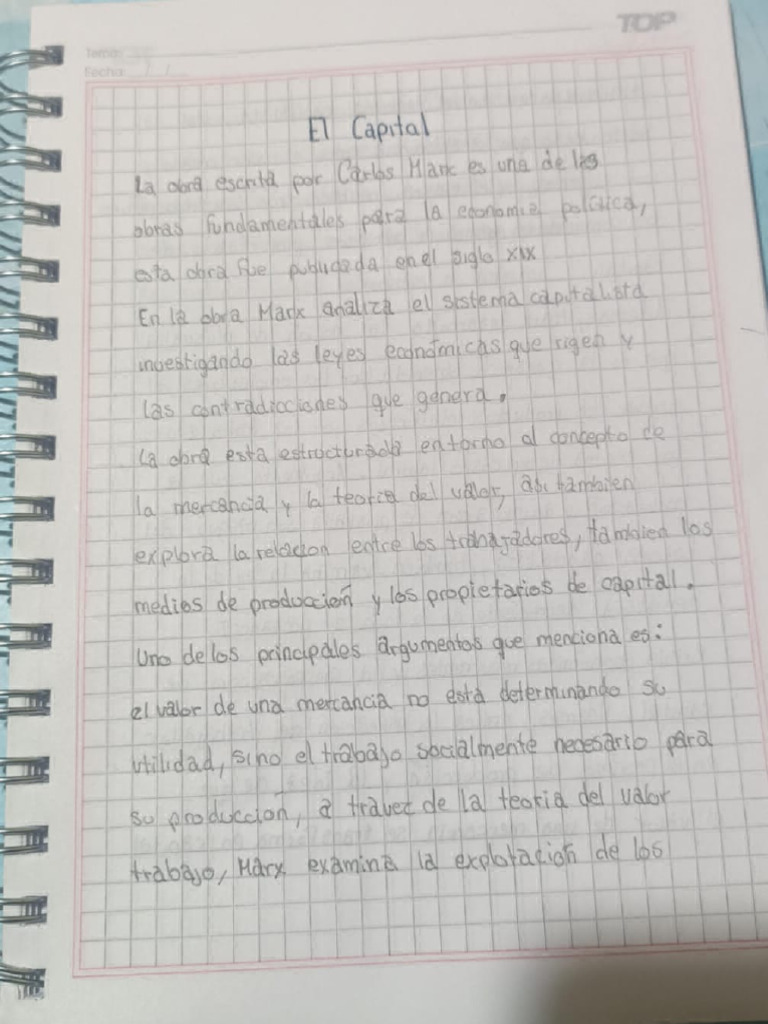 TOP
Tema:
Fecha:
El Capital
La obra escrita por Carlos Marx es una de las
obras fundamentales para la economia politica,
esta obra fue publicada en el siglo XIX
En la obra Marx analiza el sistema capitalista
investigando las leyes económicas que rigen y
las contradicciones que genera.
La obra esta estructurada entorno al concepto de
la mercancia y la teoria del valor, asi tambien
explora la relacion entre los trabajadores, tambien los
medios de producción y los propietarios de capital.
Uno de los principales argumentos que menciona es:
el valor de una mercancia no está determinando su
utilidad, sino el trabajo socialmente necesario para
su producción, a travez de la teoria del valor
trabajo, Marx examina la explotación de los